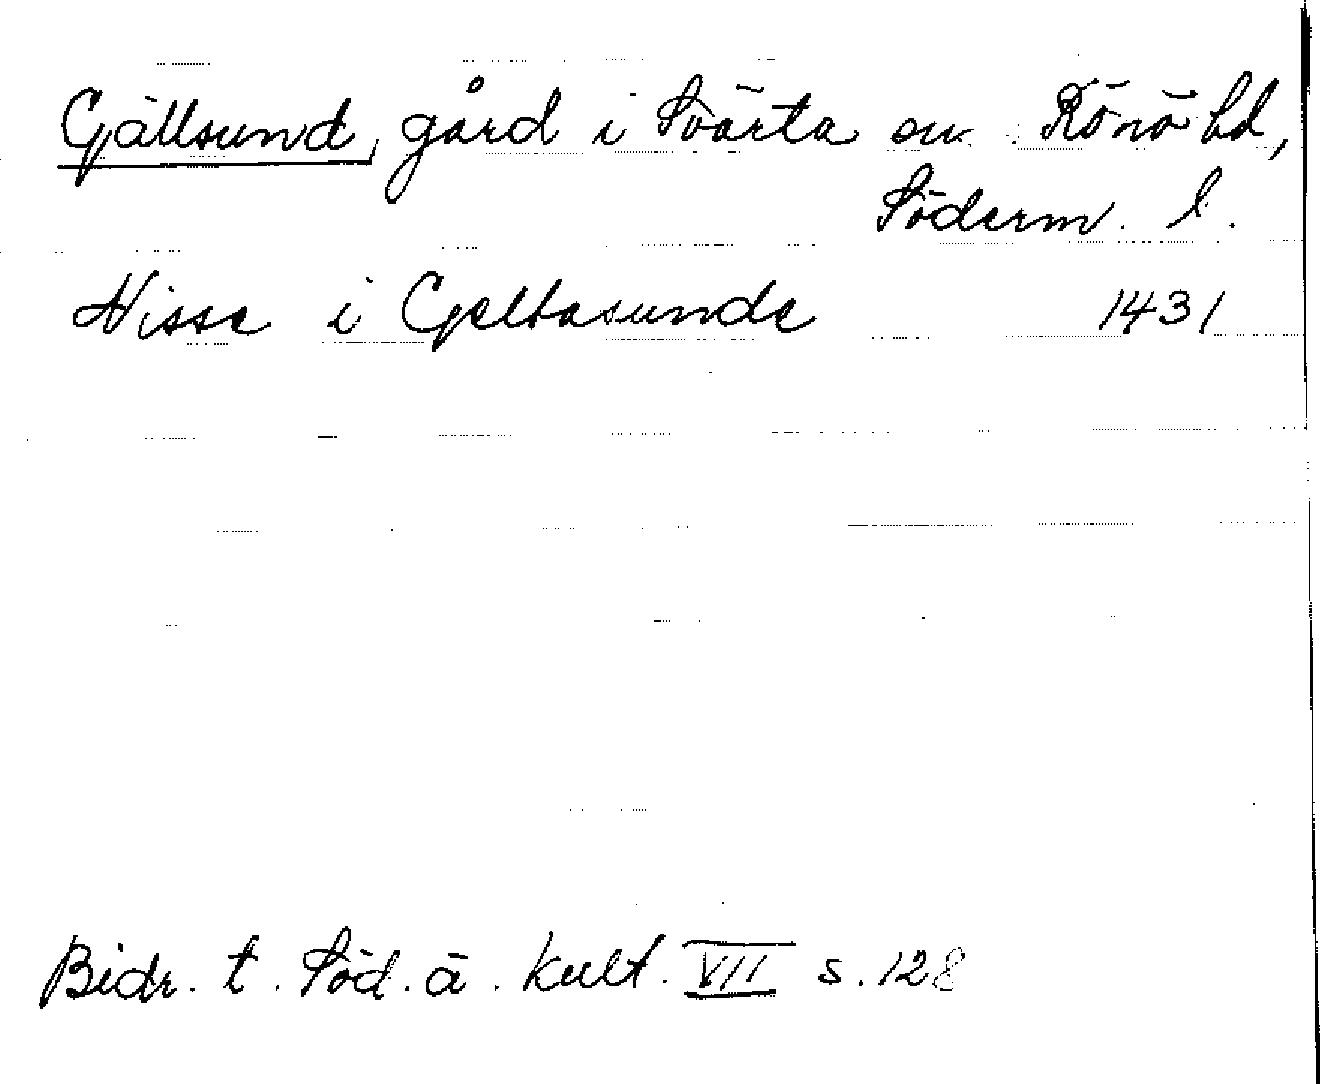 Gällsund, gård i Svärta sn. Rönö hd,
Söderm. l.
Nisse i Geltasunde 1431
Bidr. t. Söd. ä. kult. VII s. 128